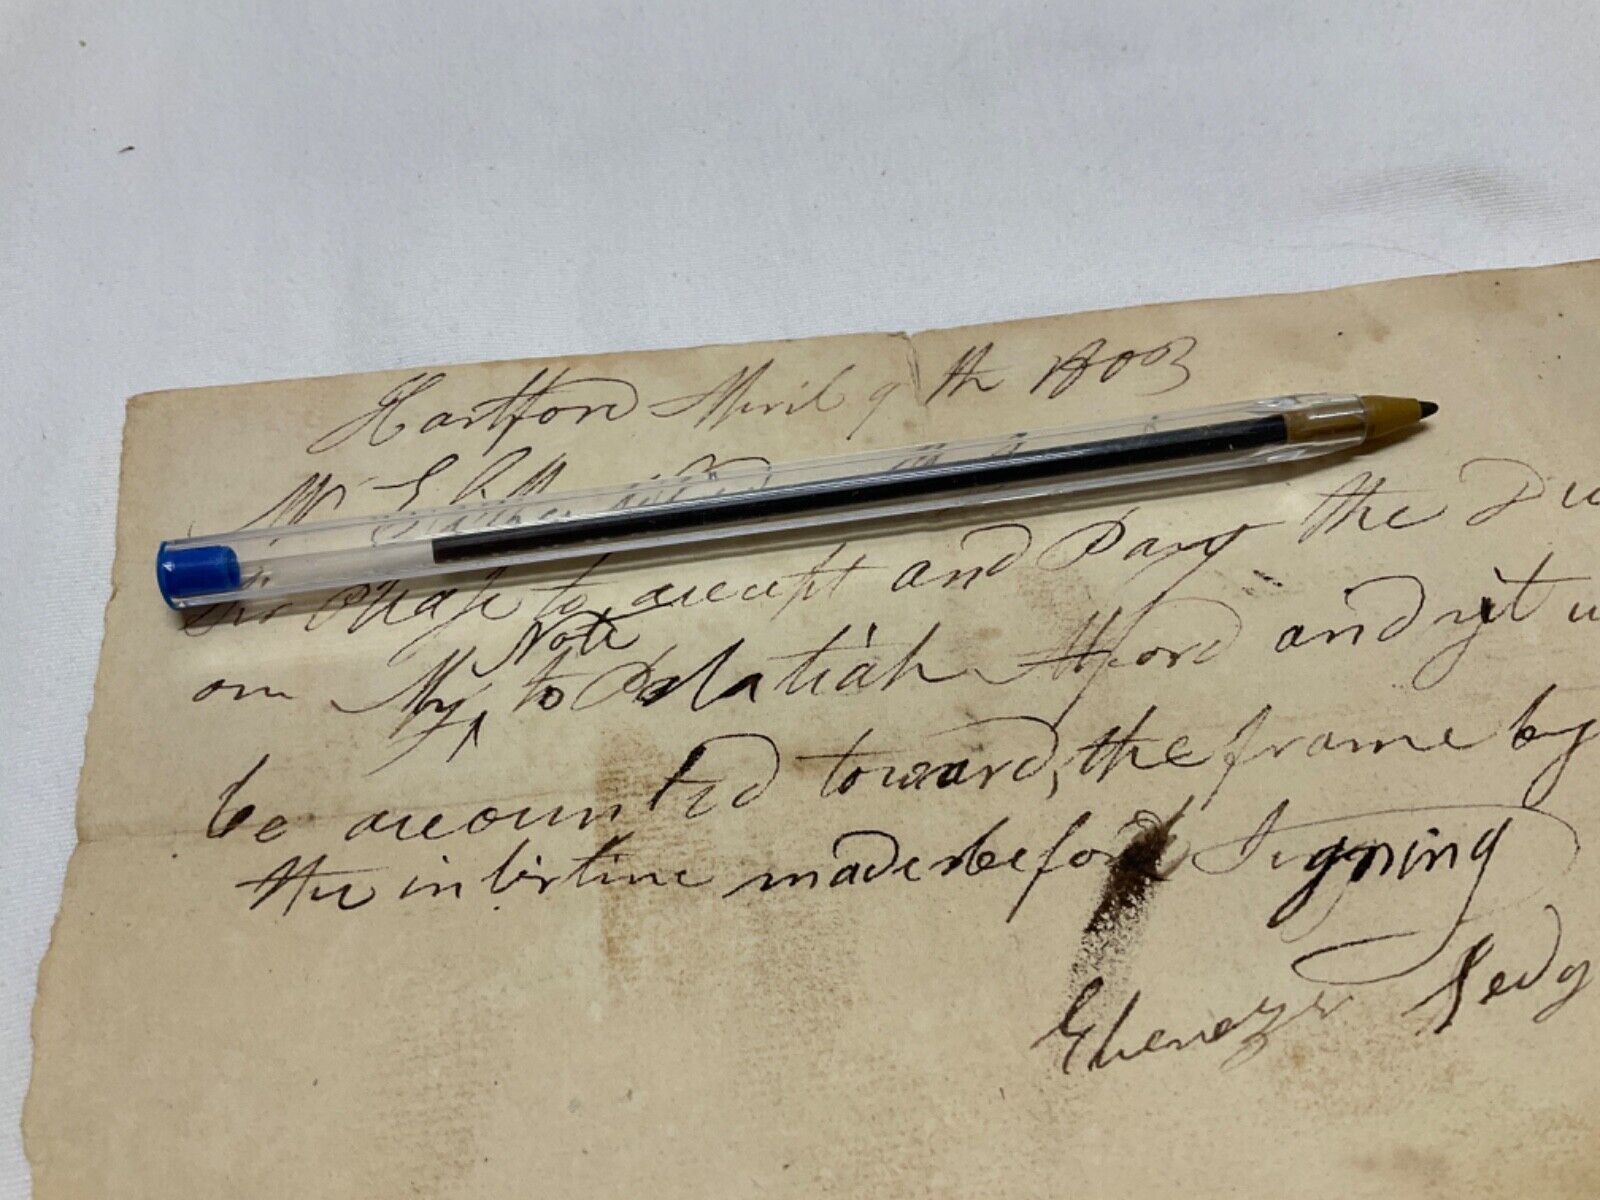 Hartford April 9 th 1803
Mr
Sir Pleas to accept and Pay the Du
on My Note to Pelatiah and it
be accounted toward, the frame by
the interline made before Signing
Ebenezer Sedg